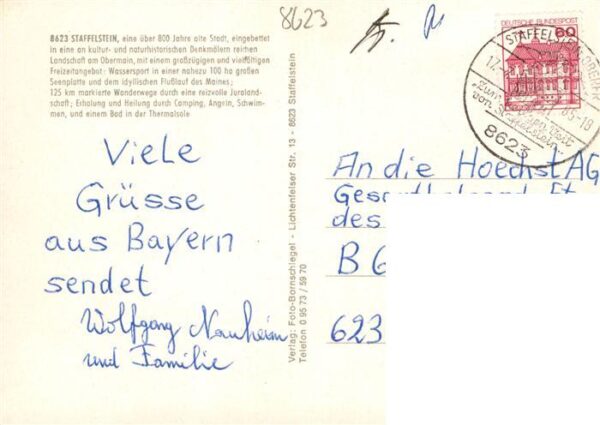 8623
8623 STAFFELSTEIN, eine über 800 Jahre alte Stadt, eingebettet
in eine an kultur- und naturhistorischen Denkmälern reichen
Landschaft am Obermain, mit einem großzügigen und vielfältigen
Freizeitangebot: Wassersport in einer nahezu 100 ha großen
Seenplatte und dem idyllischen Flußlauf des Maines;
125 km markierte Wanderwege durch eine reizvolle Juraland-
schaft; Erholung und Heilung durch Camping, Angeln, Schwim-
men, und einem Bad in der Thermalsole
Viele
Grüsse
aus Bayern
sendet
Wolfgang Nauheim
und Familie
Verlag: Foto-Bornschlegel - Lichtenfelser Str. 13 - 8623 Staffelstein
Telefon 0 95 73 / 59 70
DEUTSCHE BUNDESPOST
60
STAFFELSTEIN
17.
85-18
von Staffelstein
8623
An die Hoechst AG
des
B 6
623